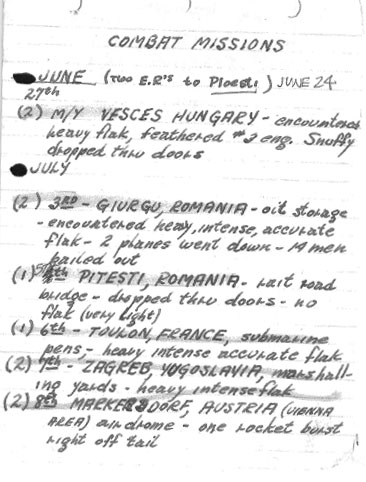 COMBAT MISSIONS
JUNE (TWO E.R's to Ploesti) JUNE 24
27th
(2) M/Y VESCES HUNGARY - encountered
heavy flak, feathered #2 eng. Snuffy
dropped thru doors
JULY
(2) 3RD - GIURGU, ROMANIA - oil storage
- encountered heavy, intense, accurate
flak - 2 planes went down - 14 men
bailed out
(1) PITESTI, ROMANIA - rail road
bridge - dropped thru doors - no
flak (very light)
(1) 6th - TOULON, FRANCE, submarine
pens - heavy intense accurate flak
(2) 7th - ZAGREB, YUGOSLAVIA, marshall-
ing yards - heavy intense flak
(2) 8th MARKERSDORF, AUSTRIA (VIENNA
AREA) airdrome - one rocket burst
right off tail